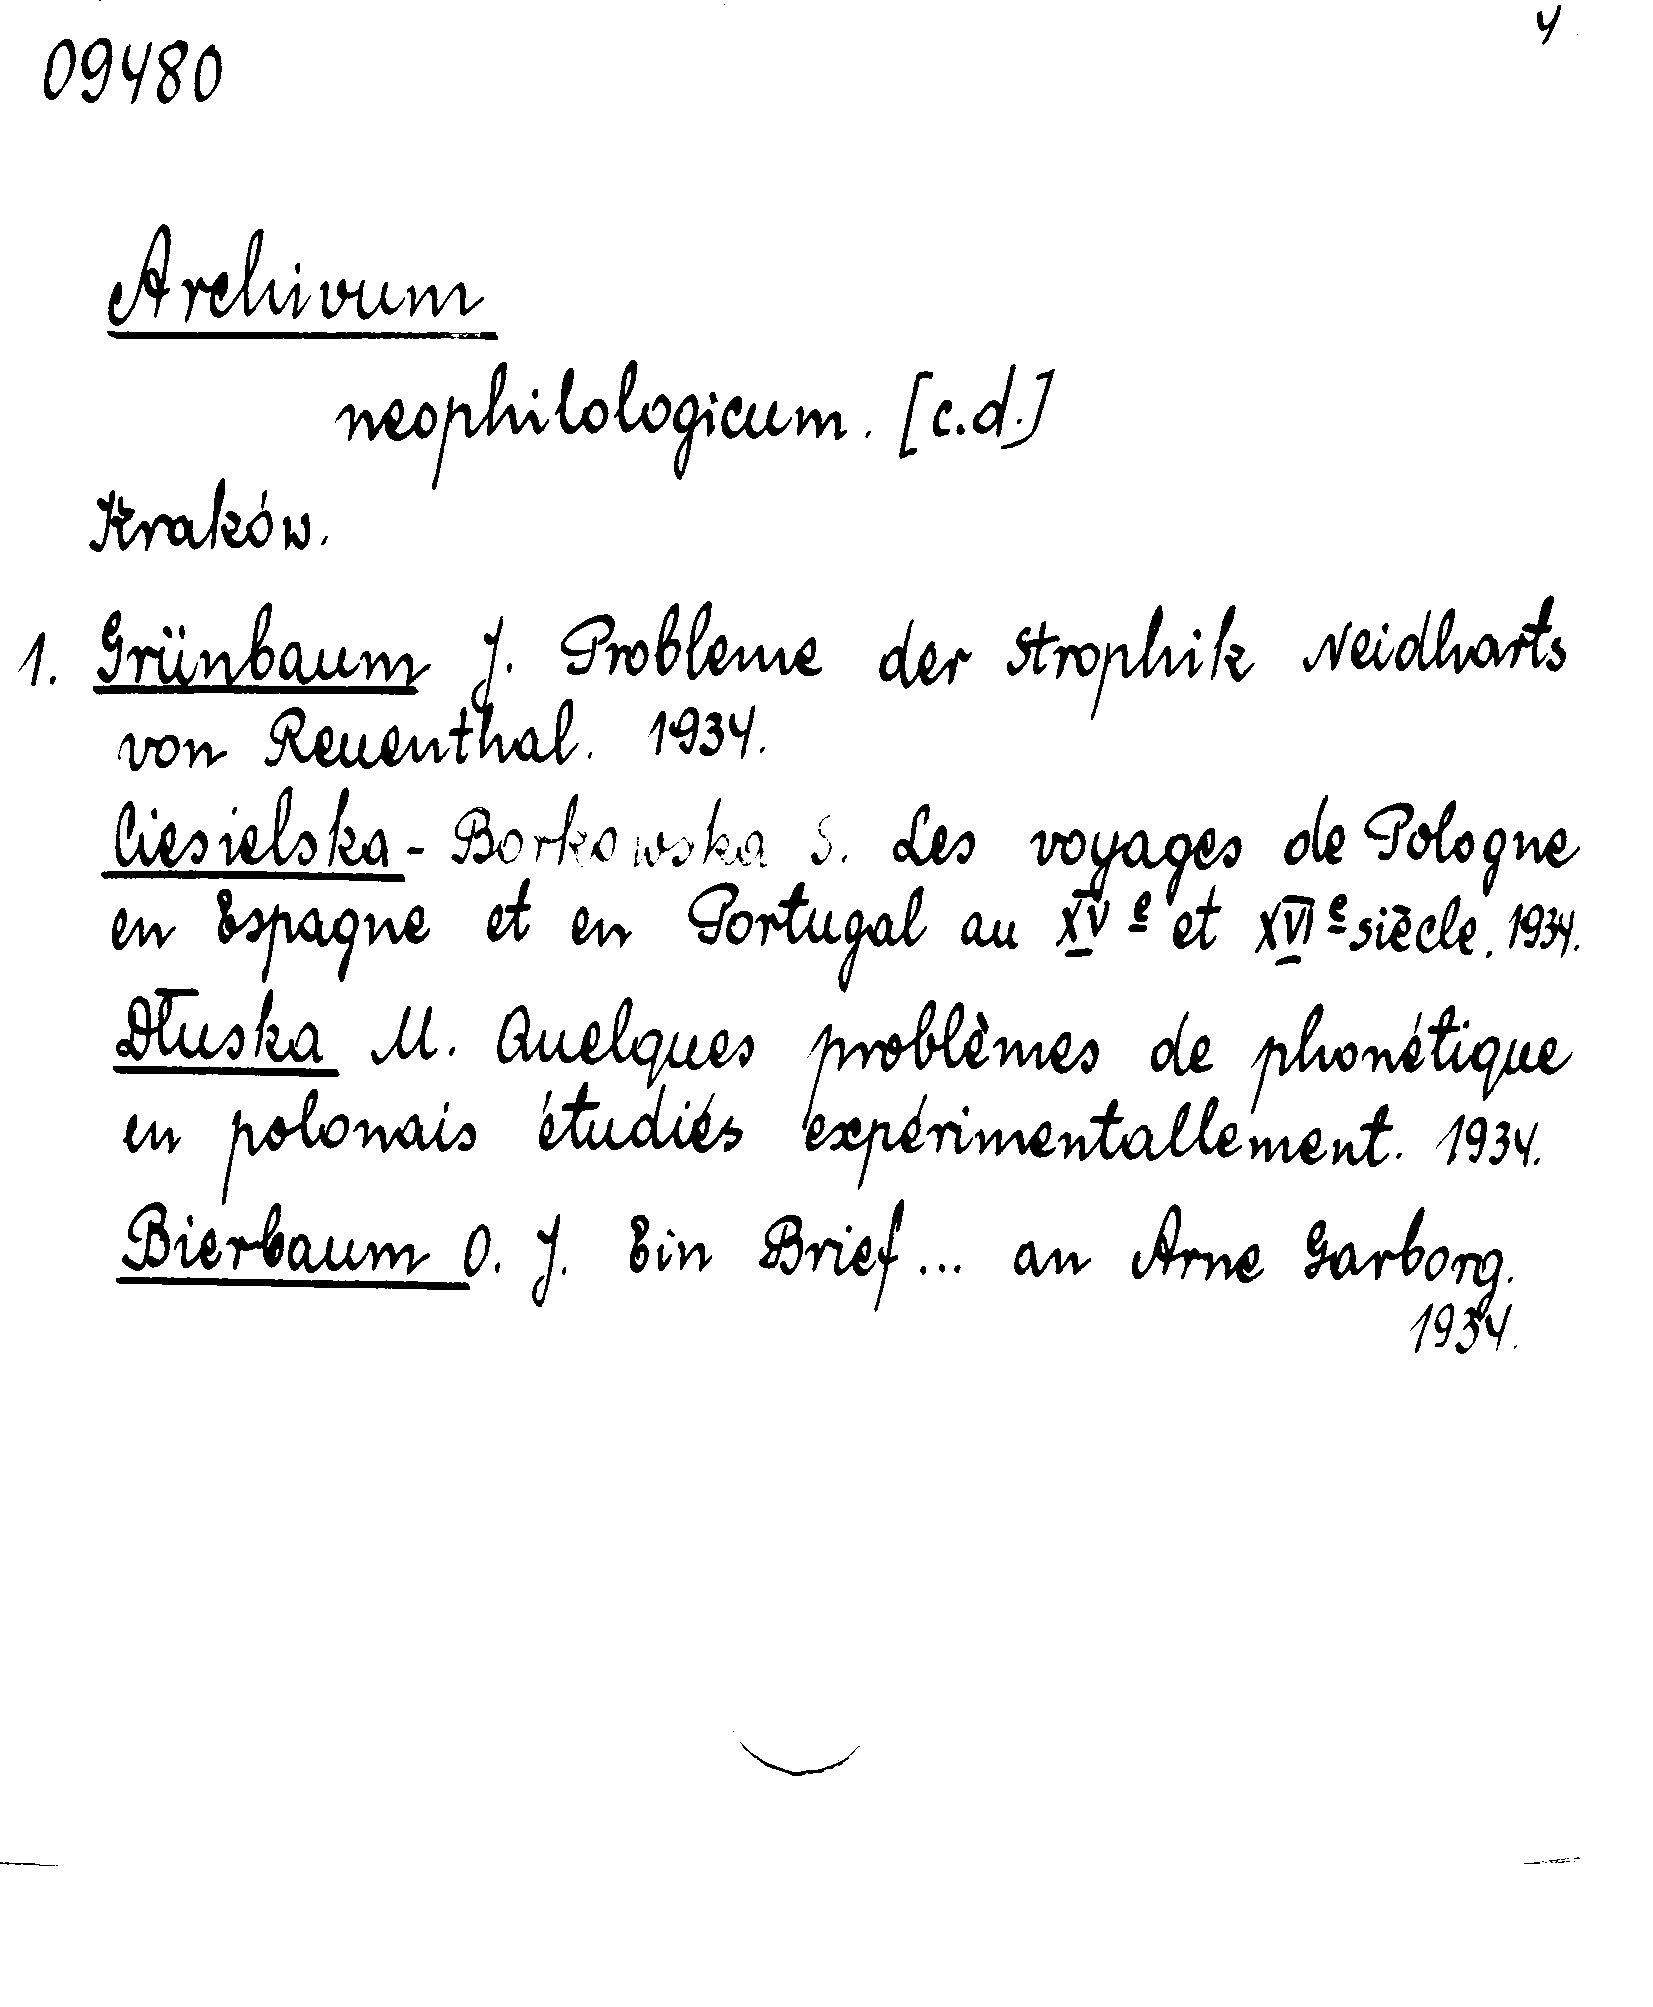 4
09480
Archivum
neophilologicum. [c.d.]
Kraków.
1. Grünbaum J. Probleme der Strophik Neidharts
von Reuenthal. 1934.
Ciesielska-Borkowska S. Les voyages de Pologne
en Espagne et en Portugal au XVe et XVIe siècle. 1934.
Dłuska M. Quelques problèmes de phonétique
en polonais étudiés expérimentallement. 1934.
Bierbaum O. J. Ein Brief... an Arne Garborg.
1934.